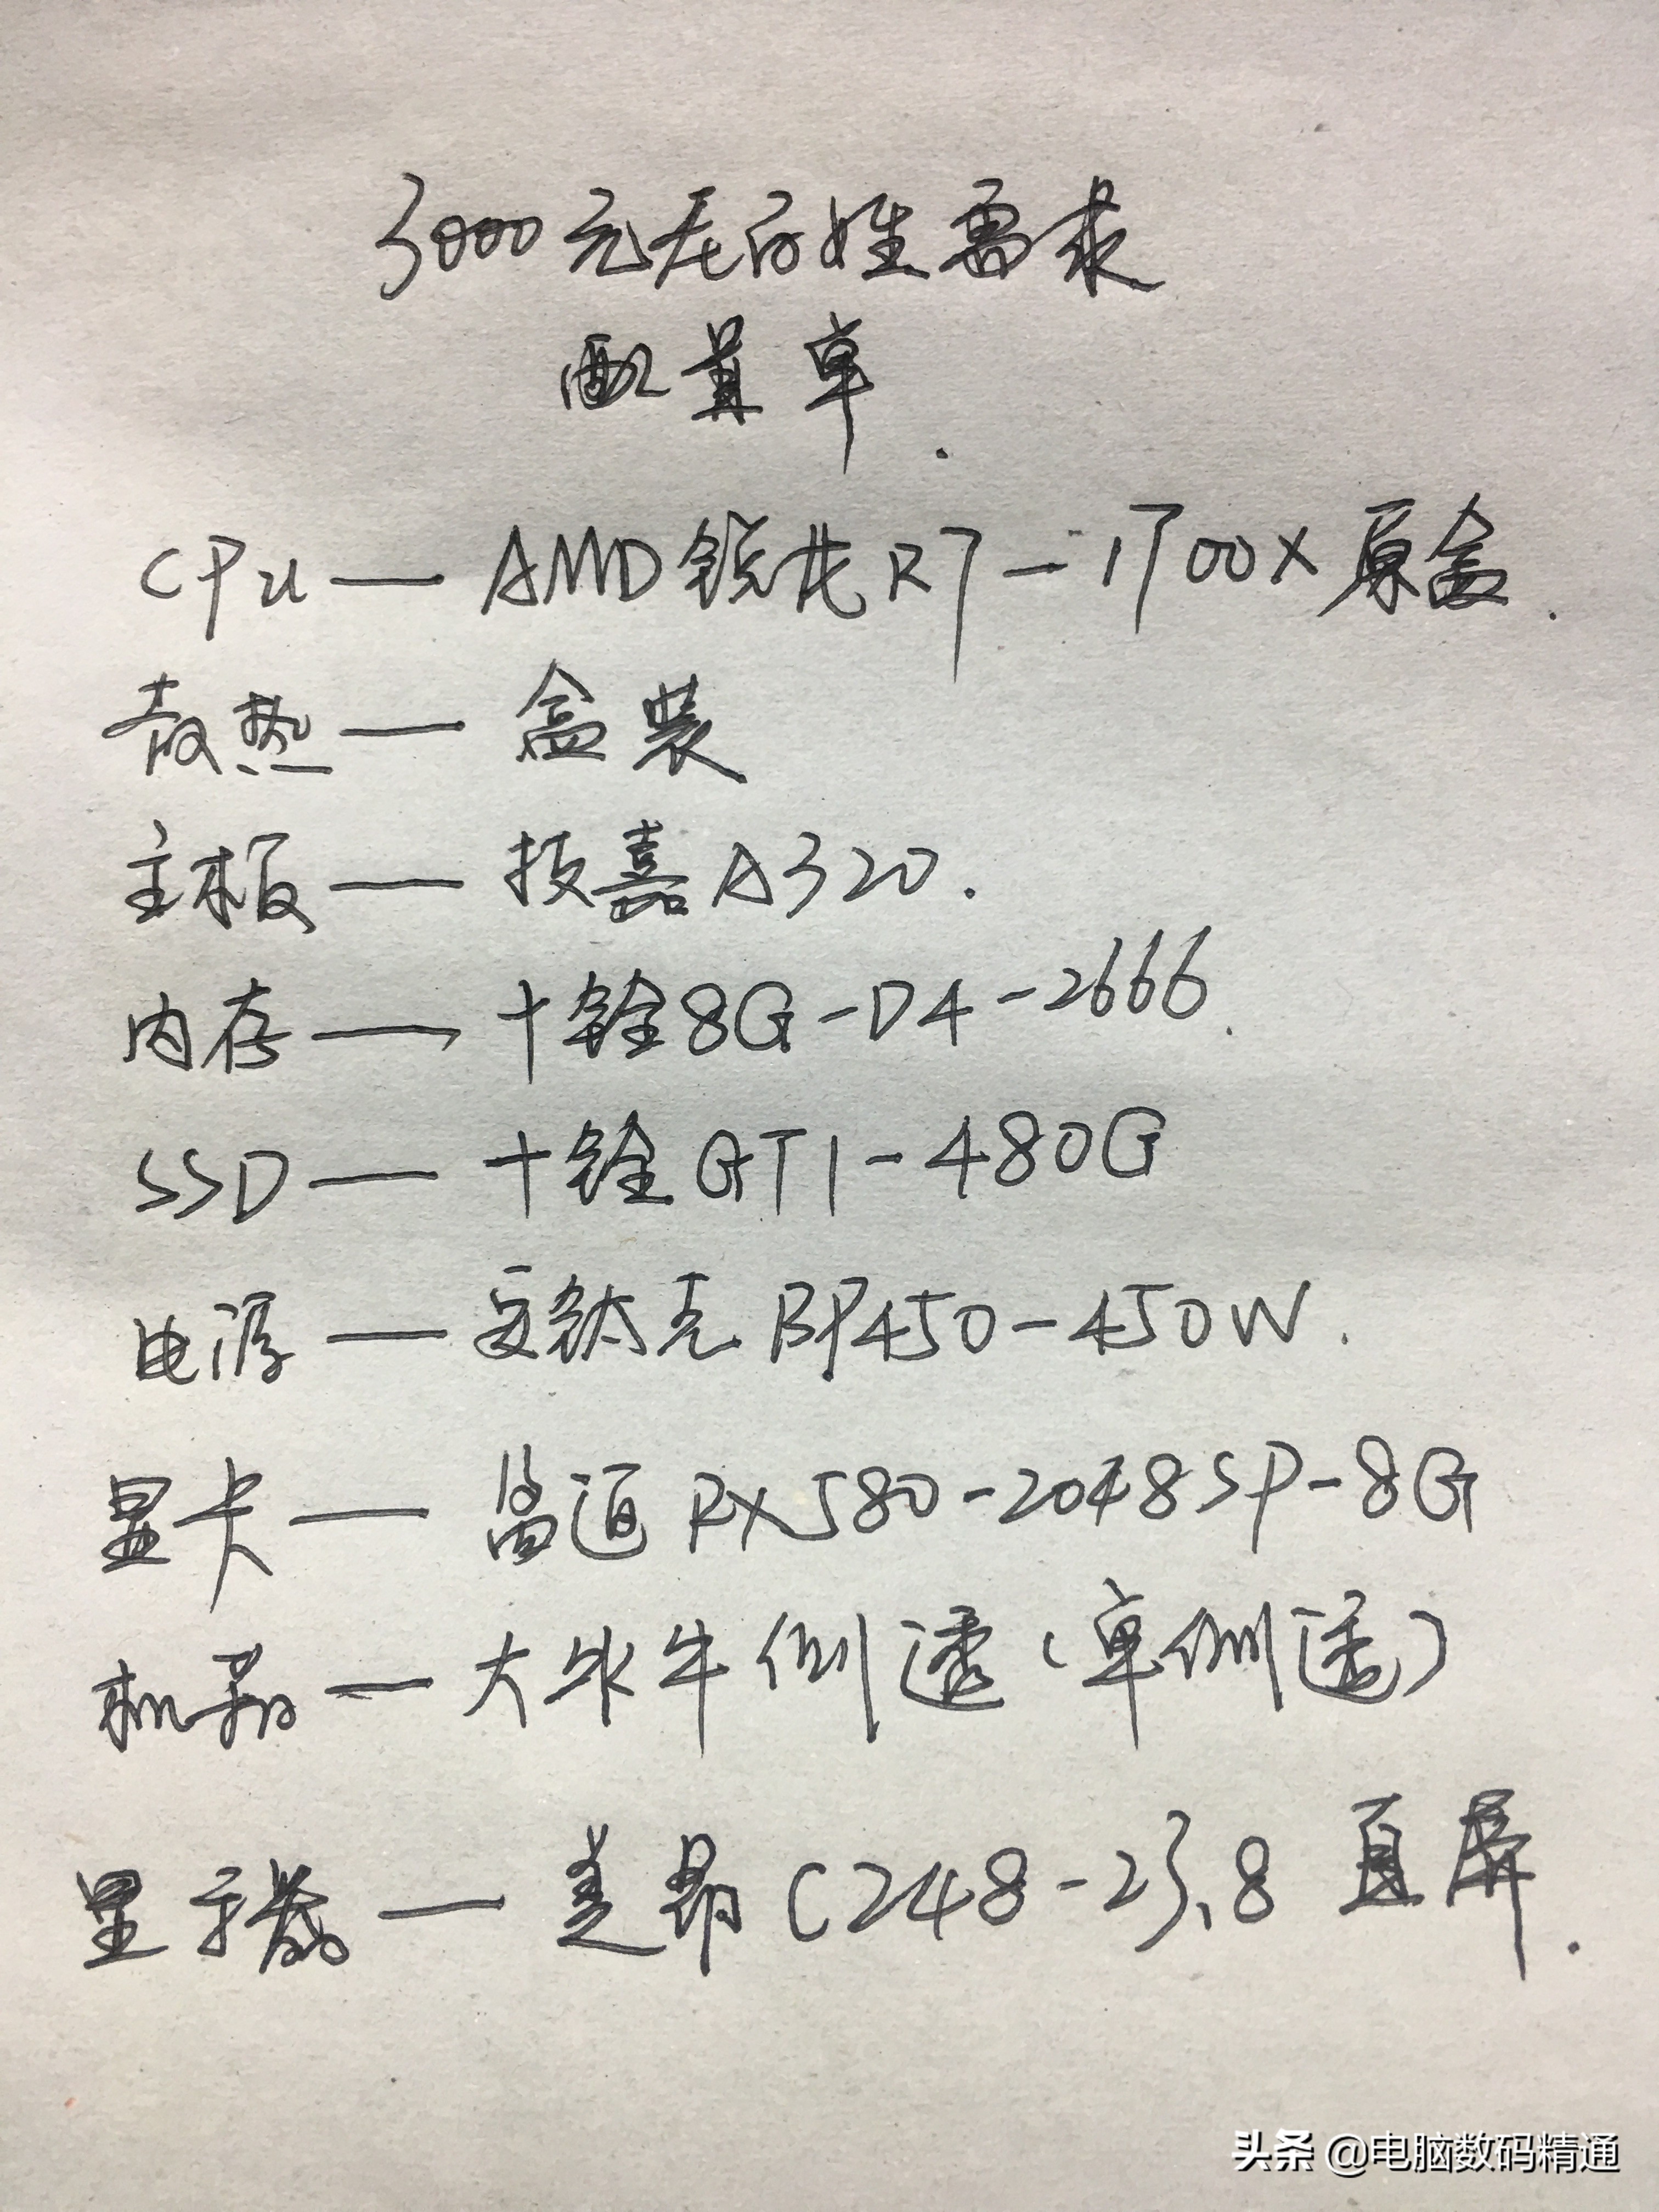 3000元左右性需求
配置单.
CPU — AMD锐龙R7-1700X原盒.
散热 — 盒装
主板 — 技嘉A320.
内存 — 十铨8G-D4-2666.
SSD — 十铨GT1-480G
电源 — 艾钛克BP450-450W.
显卡 — 蓝 RX580-2048SP-8G
机箱 — 大水牛侧透(单侧透)
显示器 — 美昂C248-23.8直屏.
头条 @电脑数码精通